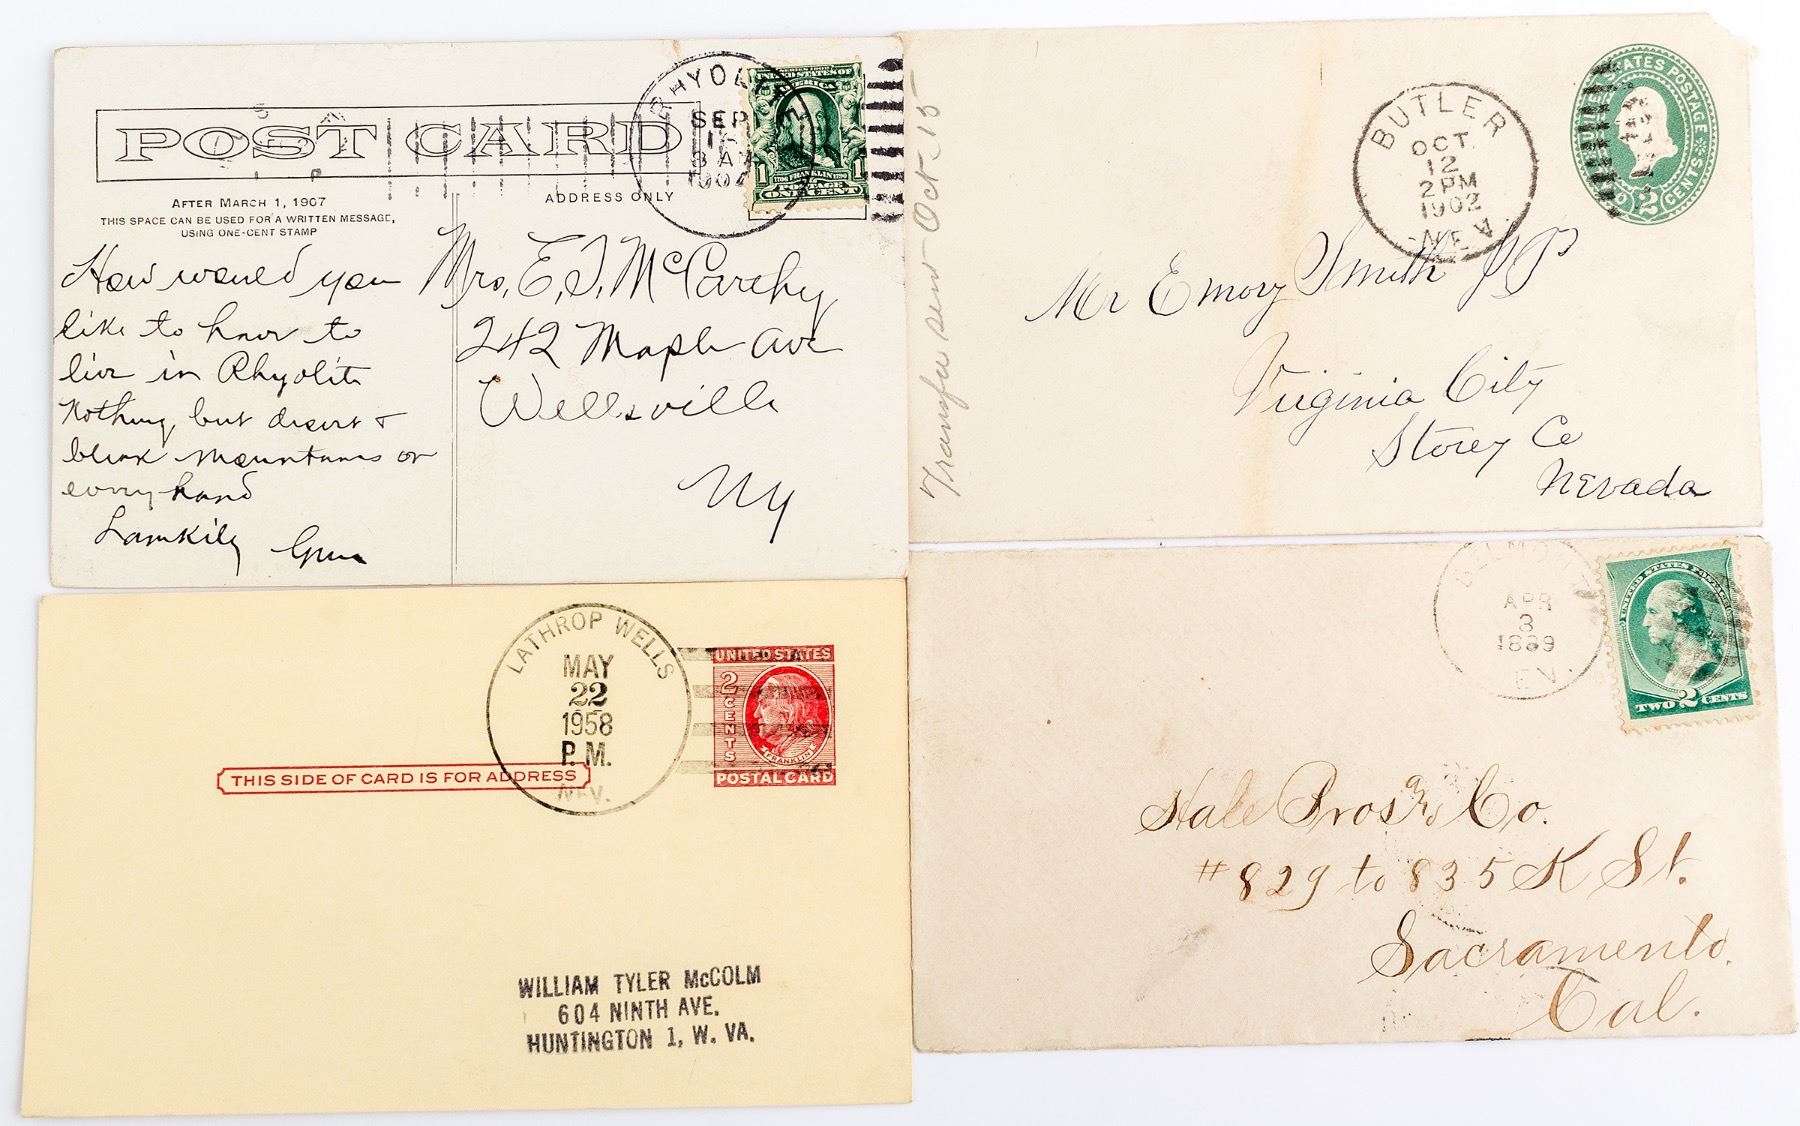 POST CARD
AFTER MARCH 1, 1907
THIS SPACE CAN BE USED FOR A WRITTEN MESSAGE,
USING ONE-CENT STAMP
ADDRESS ONLY
SEP
UNITED STATES OF
AMERICA
1 FRANKLIN 1
POSTAGE
ONE CENT
How would you
like to have to
live in Rhyolite
Nothing but desert &
bleak mountains on
every hand
Mrs. E. J. McCarthy
242 Maple Ave
Wellsville
NY
BUTLER
OCT.
12
2 PM
1902
NEV
STATES POSTAGE
2 CENTS
Transfer sent Oct-15
Mr Emory Smith
Virginia City
Storey Co
Nevada
LATHROP WELLS
MAY
22
1958
P.M.
NEV.
UNITED STATES
2 CENTS
FRANKLIN
POSTAL CARD
THIS SIDE OF CARD IS FOR ADDRESS
WILLIAM TYLER McCOLM
604 NINTH AVE.
HUNTINGTON 1, W. VA.
APR
3
1889
EV.
UNITED STATES POSTAGE
TWO 2 CENTS
Hale Bros & Co.
#829 to 835 K St.
Sacramento.
Cal.